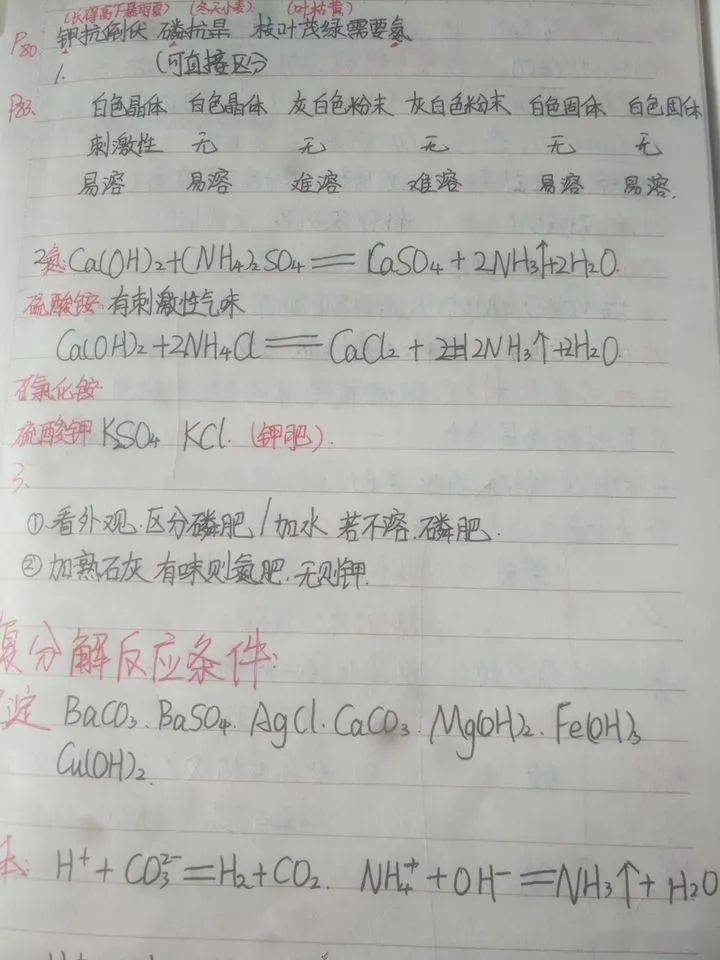 (长得高下暴雨夏) (冬天小麦) (叶枯黄)
P80. 钾抗倒伏 磷抗旱 枝叶茂绿需要氮
1. (可直接区分)
P83. 白色晶体 白色晶体 灰白色粉末 灰白色粉末 白色固体 白色固体
刺激性 无 无 无 无 无
易溶 易溶 难溶 难溶 易溶 易溶.
2氮: Ca(OH)₂+(NH₄)₂SO₄══CaSO₄+2NH₃↑+2H₂O.
硫酸铵:有刺激性气味
Ca(OH)₂+2NH₄Cl══CaCl₂+2NH₃↑+2H₂O.
氯化铵
硫酸钾 K₂SO₄ KCl. (钾肥).
3、
①看外观.区分磷肥/加水 若不溶.磷肥.
②加熟石灰 有味则氮肥.无则钾.
复分解反应条件:
淀 BaCO₃.BaSO₄.AgCl.CaCO₃.Mg(OH)₂.Fe(OH)₃
Cu(OH)₂.
H⁺+CO₃²⁻=H₂+CO₂. NH₄⁺+OH⁻=NH₃↑+H₂O